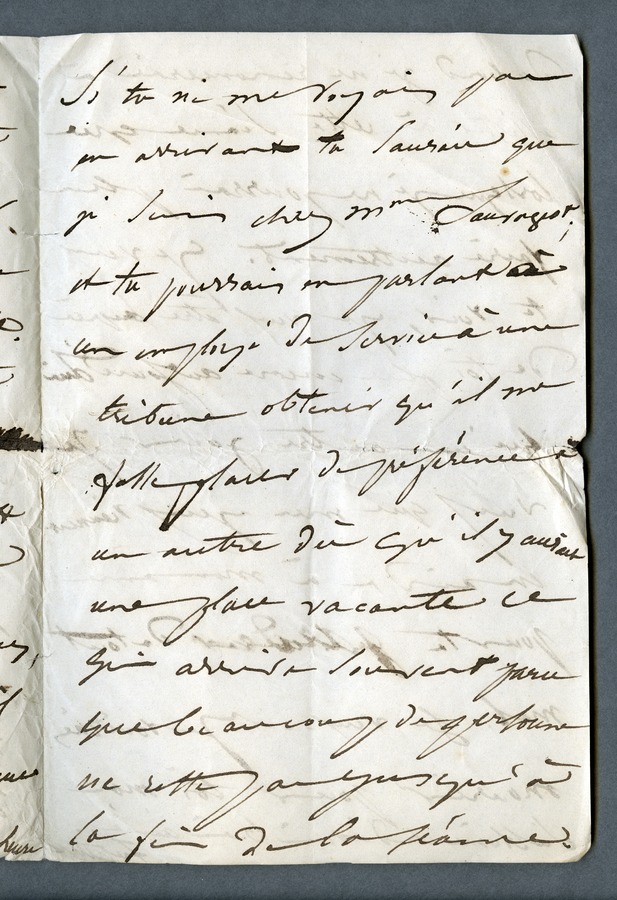 Si tu ne me voyais pas
en arrivant tu sauräis que
je suis chez Mme Sauvageot,
et tu pourrais en parlant à
un employé de service à une
tribune obtenir qu'il me
fasse placer de préférence à
un autre dès qu'il y aurait
une place vacante ce
qui arrive souvent parce
que beaucoup de personne
ne reste pas jusqu'à
la fin de la séance.